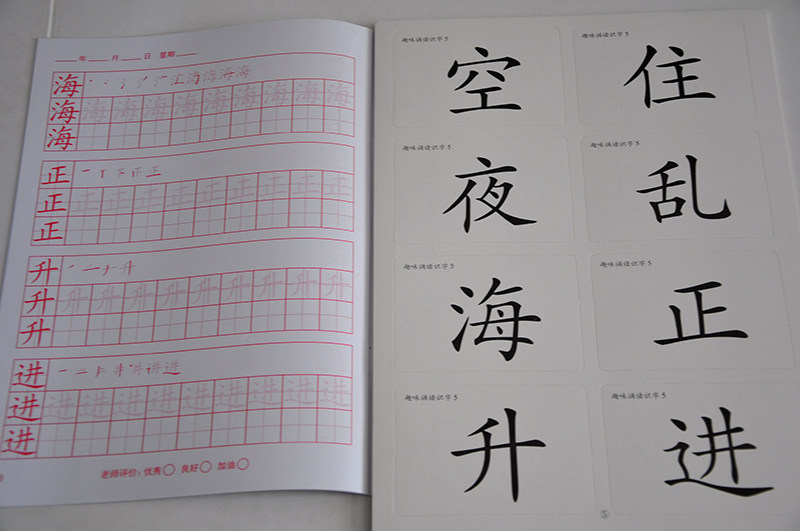 年 月 日 星期
海 海海海
海 海 海 海 海 海 海 海 海 海
海
正 正
正 正 正 正 正 正 正 正 正 正
正
升 升
升 升 升 升 升 升 升 升 升 升
升
进 进
进 进 进 进 进 进 进 进 进 进
进
老师评价: 优秀 良好 加油
趣味诵读识字 5
空
趣味诵读识字 5
住
趣味诵读识字 5
夜
趣味诵读识字 5
乱
趣味诵读识字 5
海
趣味诵读识字 5
正
趣味诵读识字 5
升
趣味诵读识字 5
进
⑤